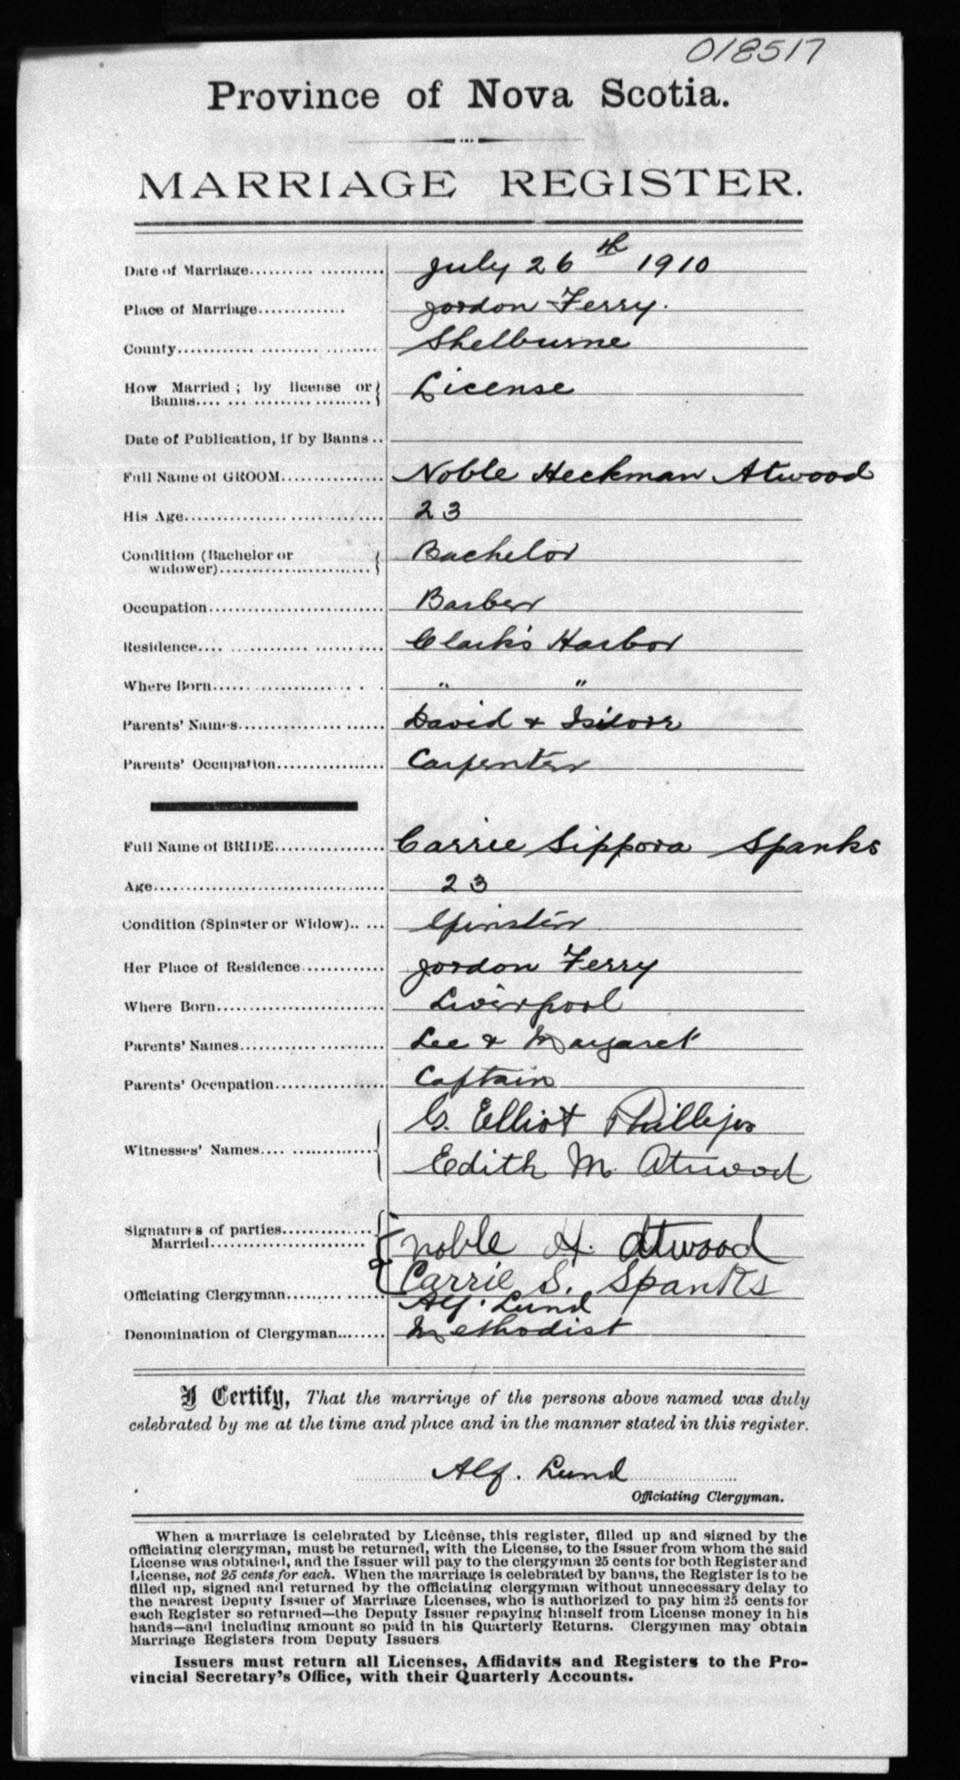 018517
Province of Nova Scotia.
MARRIAGE REGISTER.
Date of Marriage.......... ........... July 26th 1910
Place of Marriage.............. Jordon Ferry.
County............ ............ ......... Shelburne
How Married ; by license or
Banns.... ... .................... License
Date of Publication, if by Banns ..
Full Name of GROOM................ Noble Heckman Atwood
His Age.................. ................ 23
Condition (Bachelor or
widower)......................... Bachelor
Occupation............................. Barber
Residence.... ............. ...... ...... Clark's Harbor
Where Born...................... . . " "
Parents' Names................. ...... David & Isidore
Parents' Occupation.................. Carpenter
Full Name of BRIDE.................. Carrie Sippora Spanks
Age...................................... 23
Condition (Spinster or Widow).. ... Spinster
Her Place of Residence.............. Jordon Ferry
Where Born............................ Liverpool
Parents' Names................. ...... Lee & Margaret
Parents' Occupation.................. Captain
G. Elliot Phillips
Witnesses' Names.... ..............
Edith M. Atwood
Signatures of parties...............
Married.......................... Noble H. Atwood
Carrie S. Spanks
Officiating Clergyman................ Alf. Lund
Denomination of Clergyman........ Methodist
I Certify, That the marriage of the persons above named was duly
celebrated by me at the time and place and in the manner stated in this register.
Alf. Lund
Officiating Clergyman.
When a marriage is celebrated by License, this register, filled up and signed by the
officiating clergyman, must be returned, with the License, to the Issuer from whom the said
License was obtained, and the Issuer will pay to the clergyman 25 cents for both Register and
License, not 25 cents for each. When the marriage is celebrated by banns, the Register is to be
filled up, signed and returned by the officiating clergyman without unnecessary delay to
the nearest Deputy Issuer of Marriage Licenses, who is authorized to pay him 25 cents for
each Register so returned—the Deputy Issuer repaying himself from License money in his
hands—and including amount so paid in his Quarterly Returns. Clergymen may obtain
Marriage Registers from Deputy Issuers
Issuers must return all Licenses, Affidavits and Registers to the Pro-
vincial Secretary's Office, with their Quarterly Accounts.